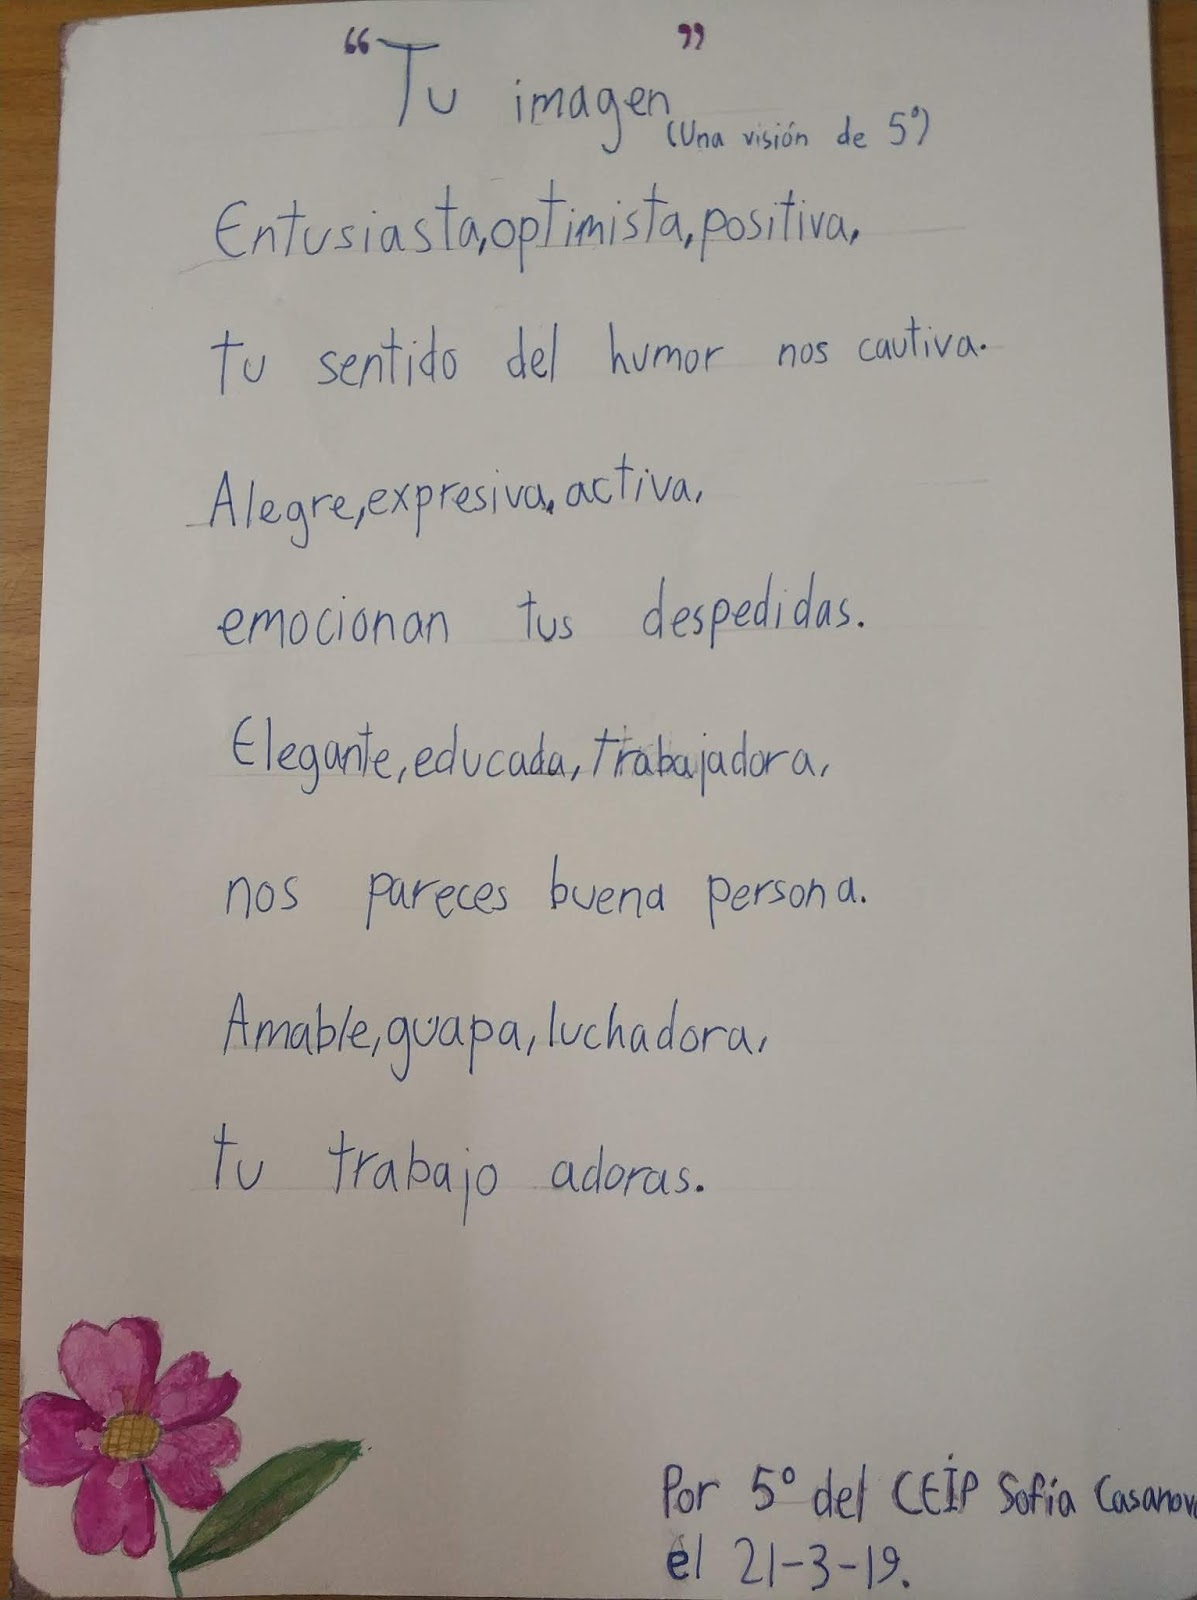 “Tu imagen”
(Una visión de 5º)
Entusiasta, optimista, positiva,
tu sentido del humor nos cautiva.
Alegre, expresiva, activa,
emocionan tus despedidas.
Elegante, educada, trabajadora,
nos pareces buena persona.
Amable, guapa, luchadora,
tu trabajo adoras.
Por 5º del CEIP Sofía Casanova
el 21-3-19.